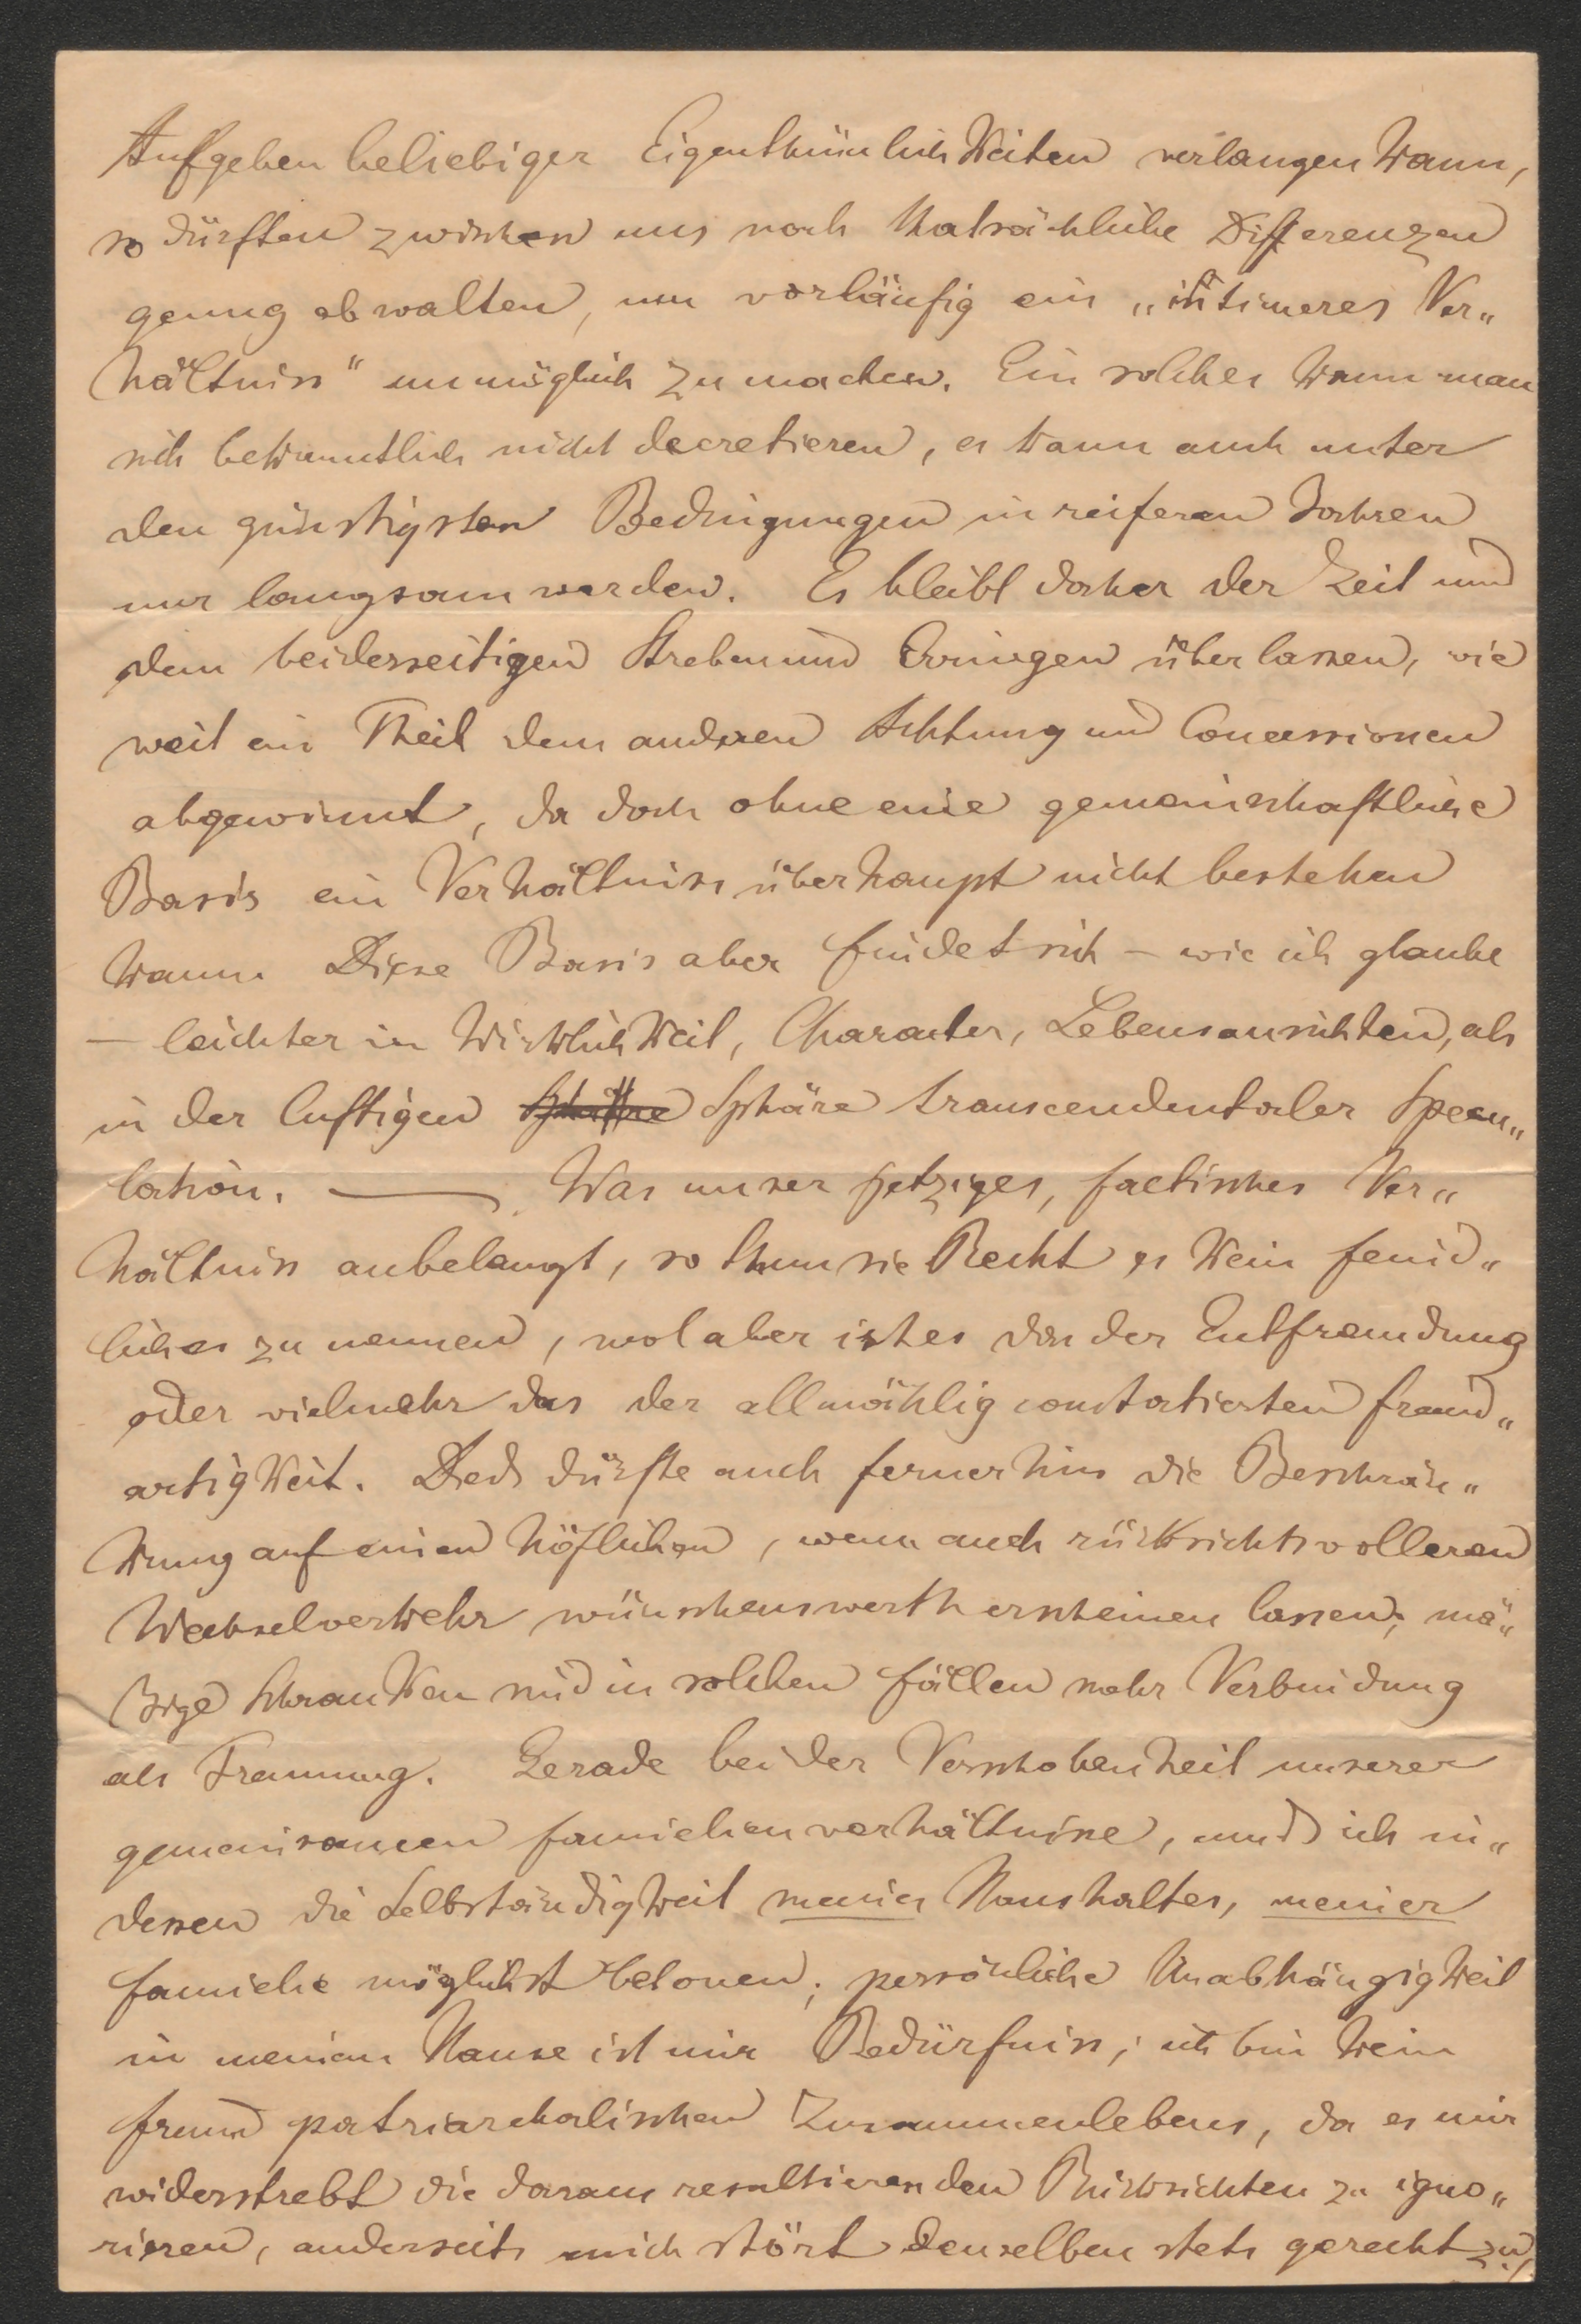 Aufgeben beliebiger Eigenthümlichkeiten verlangen kann,
so dürften zwischen uns noch thatsächliche Differenzen
genug obwalten, um vorläufig ein „intimeres Ver„
hältniss“ unmöglich zu machen. Ein solches kann man
sich bekanntlich nicht decretieren, es kann auch unter
den günstigsten Bedingungen in reiferen Jahren
nur langsam werden. Es bleibt daher der Zeit und
dem beiderseitigen Streben und Erringen überlassen, wie
weit ein Theil dem anderen Achtung und Concessionen
abgewinnt, da doch ohne eine gemeinschaftliche
Basis ein Verhältniss überhaupt nicht bestehen
kann. Diese Basis aber findet sich – wie ich glaube
– leichter in Wirklichkeit, Character, Lebensansichten, als
in der luftigen Sphäre transcendentaler Specu„
lation. — Was unser jetziges, factisches Ver„
hältniss anbelangt, so thun sie Recht es kein feind„
liches zu nennen, wol aber ist es das der Entfremdung
oder vielmehr das der allmählig constatierten Fremd„
artigkeit. Dies dürfte auch fernerhin die Beschrän„
kung auf einen höflichen, wenn auch rücksichtsvolleren
Wechselverkehr wünschenswerth erscheinen lassen; mä„
ßige Schranken sind in solchen Fällen mehr Verbindung
als Trennung. Gerade bei der Verschobenheit unserer
gemeinsamen Familienverhältnisse, muß ich in„
dessen die Selbständigkeit meines Haushaltes, meiner
Familie möglichst betonen; persönliche Unabhängigkeit
in meinem Hause ist mir Bedürfniss; ich bin kein
Freund patriarchalischen Zusammenlebens, da es mir
widerstrebt die daraus resultierenden Rücksichten zu igno„
rieren, anderseits mich stört denselben stets gerecht zu